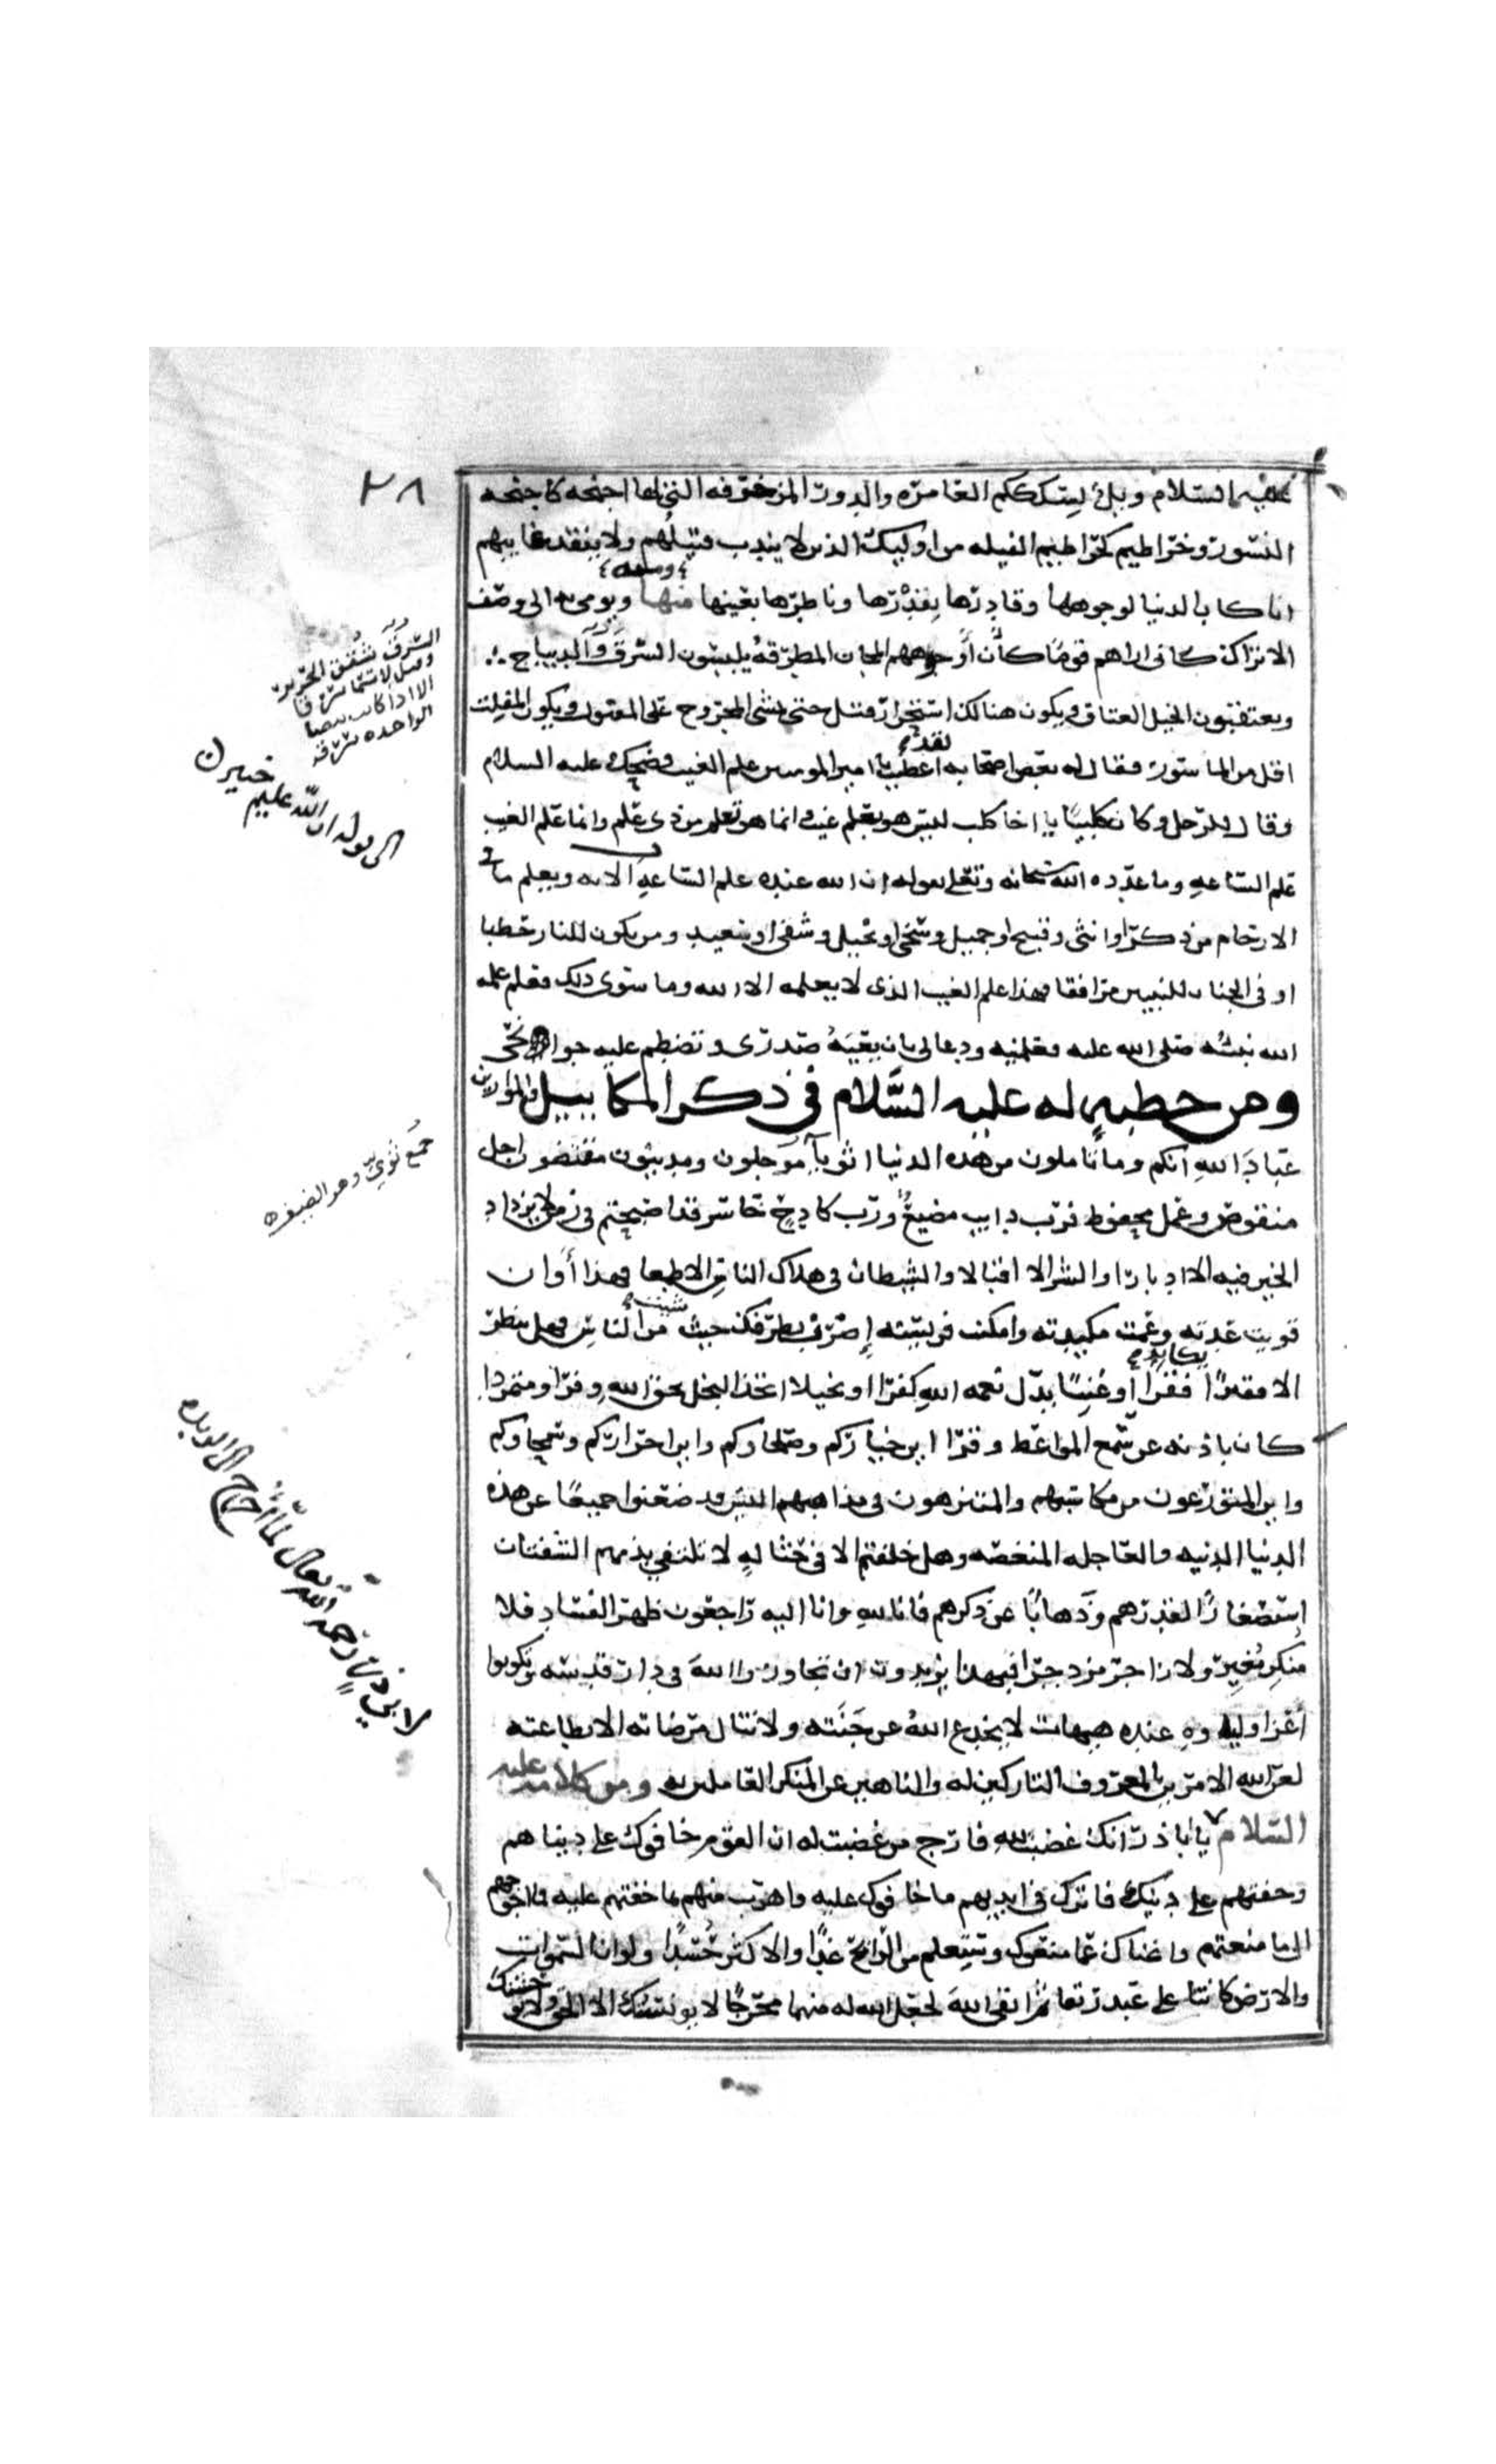 ٢٨
عليهما السلام ويل لسكككم العامره والدور المزخرفه التي لها اجنحه كاجنحه
النسور وخراطيم كخراطيم الفيله من اوليك الذين لا يندب قتيلهم ولا يفقد غايبهم
انا كاب الدنيا لوجهها وقادرها بقدرها وناظرها بعينها منها ويومي به الى وصف
ومنه
الاتراك كاني اراهم قوما كأن وجوههم المجان المطرقة يلبسون السرق والديباج
ويعتقبون الخيل العتاق ويكون هناك استحرار قتل حتى يمشي المجروح على المقتول ويكون المفلت
اقل من الماسور فقال له بعض اصحابه لقد اعطيت يا امير المومنين علم الغيب فضحك عليه السلام
وقال للرجل وكان كلبيا يا اخا كلب ليس هو بعلم غيب وانما هو تعلم من ذي علم وانما علم الغيب
علم الساعه وما عدده الله سبحانه وتعلى بقوله ان الله عنده علم الساعه الايه ويعلم ما في
الارحام من ذكر او انثى وقبيح او جميل وسخي او بخيل وشقي او سعيد ومن يكون للنار حطبا
او في الجنان للنبيين مرافقا فهذا علم الغيب الذي لا يعلمه الا الله وما سوى ذلك فعلم علمه
الله نبيه صلى الله عليه فعلمنيه ودعا لي بان يعيه صدري وتضطم عليه جوانحي
ومن خطبة له عليه السلام في ذكر المكاييل والموازين
عباد الله انكم وما تاملون من هذه الدنيا اثويآ موجلون ومدينون مقتضون اجل
منقوص وعمل محفوظ فرب دايب مضيع ورب كادح خاسر قد اصبحتم في زمن لا يزداد
الخير فيه الا ادبارا والشر الا اقبالا والشيطان في هلاك الناس الا طمعا فهذا أوان
قويت عدته وعمت مكيدته وامكنت فريسته اضرب بطرفك حيث شيت من الناس فهل تنظر
الا فقيرا يكابد فقرا او غنيا بدل نعمه الله كفرا او بخيلا اتخذ البخل بحق الله وفرا او متمردا
كان باذنه عن سمع المواعظ وقرا اين خياركم وصلحاوكم واين احراركم وسمحاوكم
واين المتورعون في مكاسبهم والمتنزهون في مذاهبهم اليس قد ضعنوا جميعا عن هذه
الدنيا الدنيه والعاجله المنغصه وهل خلفتم الا في حثاله لا تلتقي بذمهم الشفتان
استصغارا لقدرهم وذهابا عن ذكرهم فانا لله وانا اليه راجعون ظهر الفساد فلا
منكر مغير ولا زاجر مزدجر افبهذا تريدون ان تجاوروا الله في دار قدسه وتكونوا
اعز اوليائه عنده هيهات لا يخدع الله عن جنته ولا تنال مرضاته الا بطاعته
لعن الله الامرين بالمعروف التاركين له والناهين عن المنكر العاملين به ومن كلامه عليه
السلام يا باذر انك غضبت لله فارج من غضبت له ان القوم خافوك على دنياهم
وخفتهم على دينك فاترك في ايديهم ما خافوك عليه واهرب منهم بما خفتهم عليه فما احوجهم
الى ما منعتهم واغناك عما منعوك وستعلم من الرابح غدا والاكثر حسدا ولو ان السموات
والارض كانتا على عبد رتقا ثم اتقى الله لجعل الله له منهما مخرجا لا يونسنك الا الحق ولا يوحشنك
السرق شقق الحرير
الا اذا كانت بيضا
الواحده سرقه
الى قوله ان الله عليم خبير
جمع ثوي وهو الضيف
لابي ذر رحمه الله تعالى لما أخرج الى الربذه